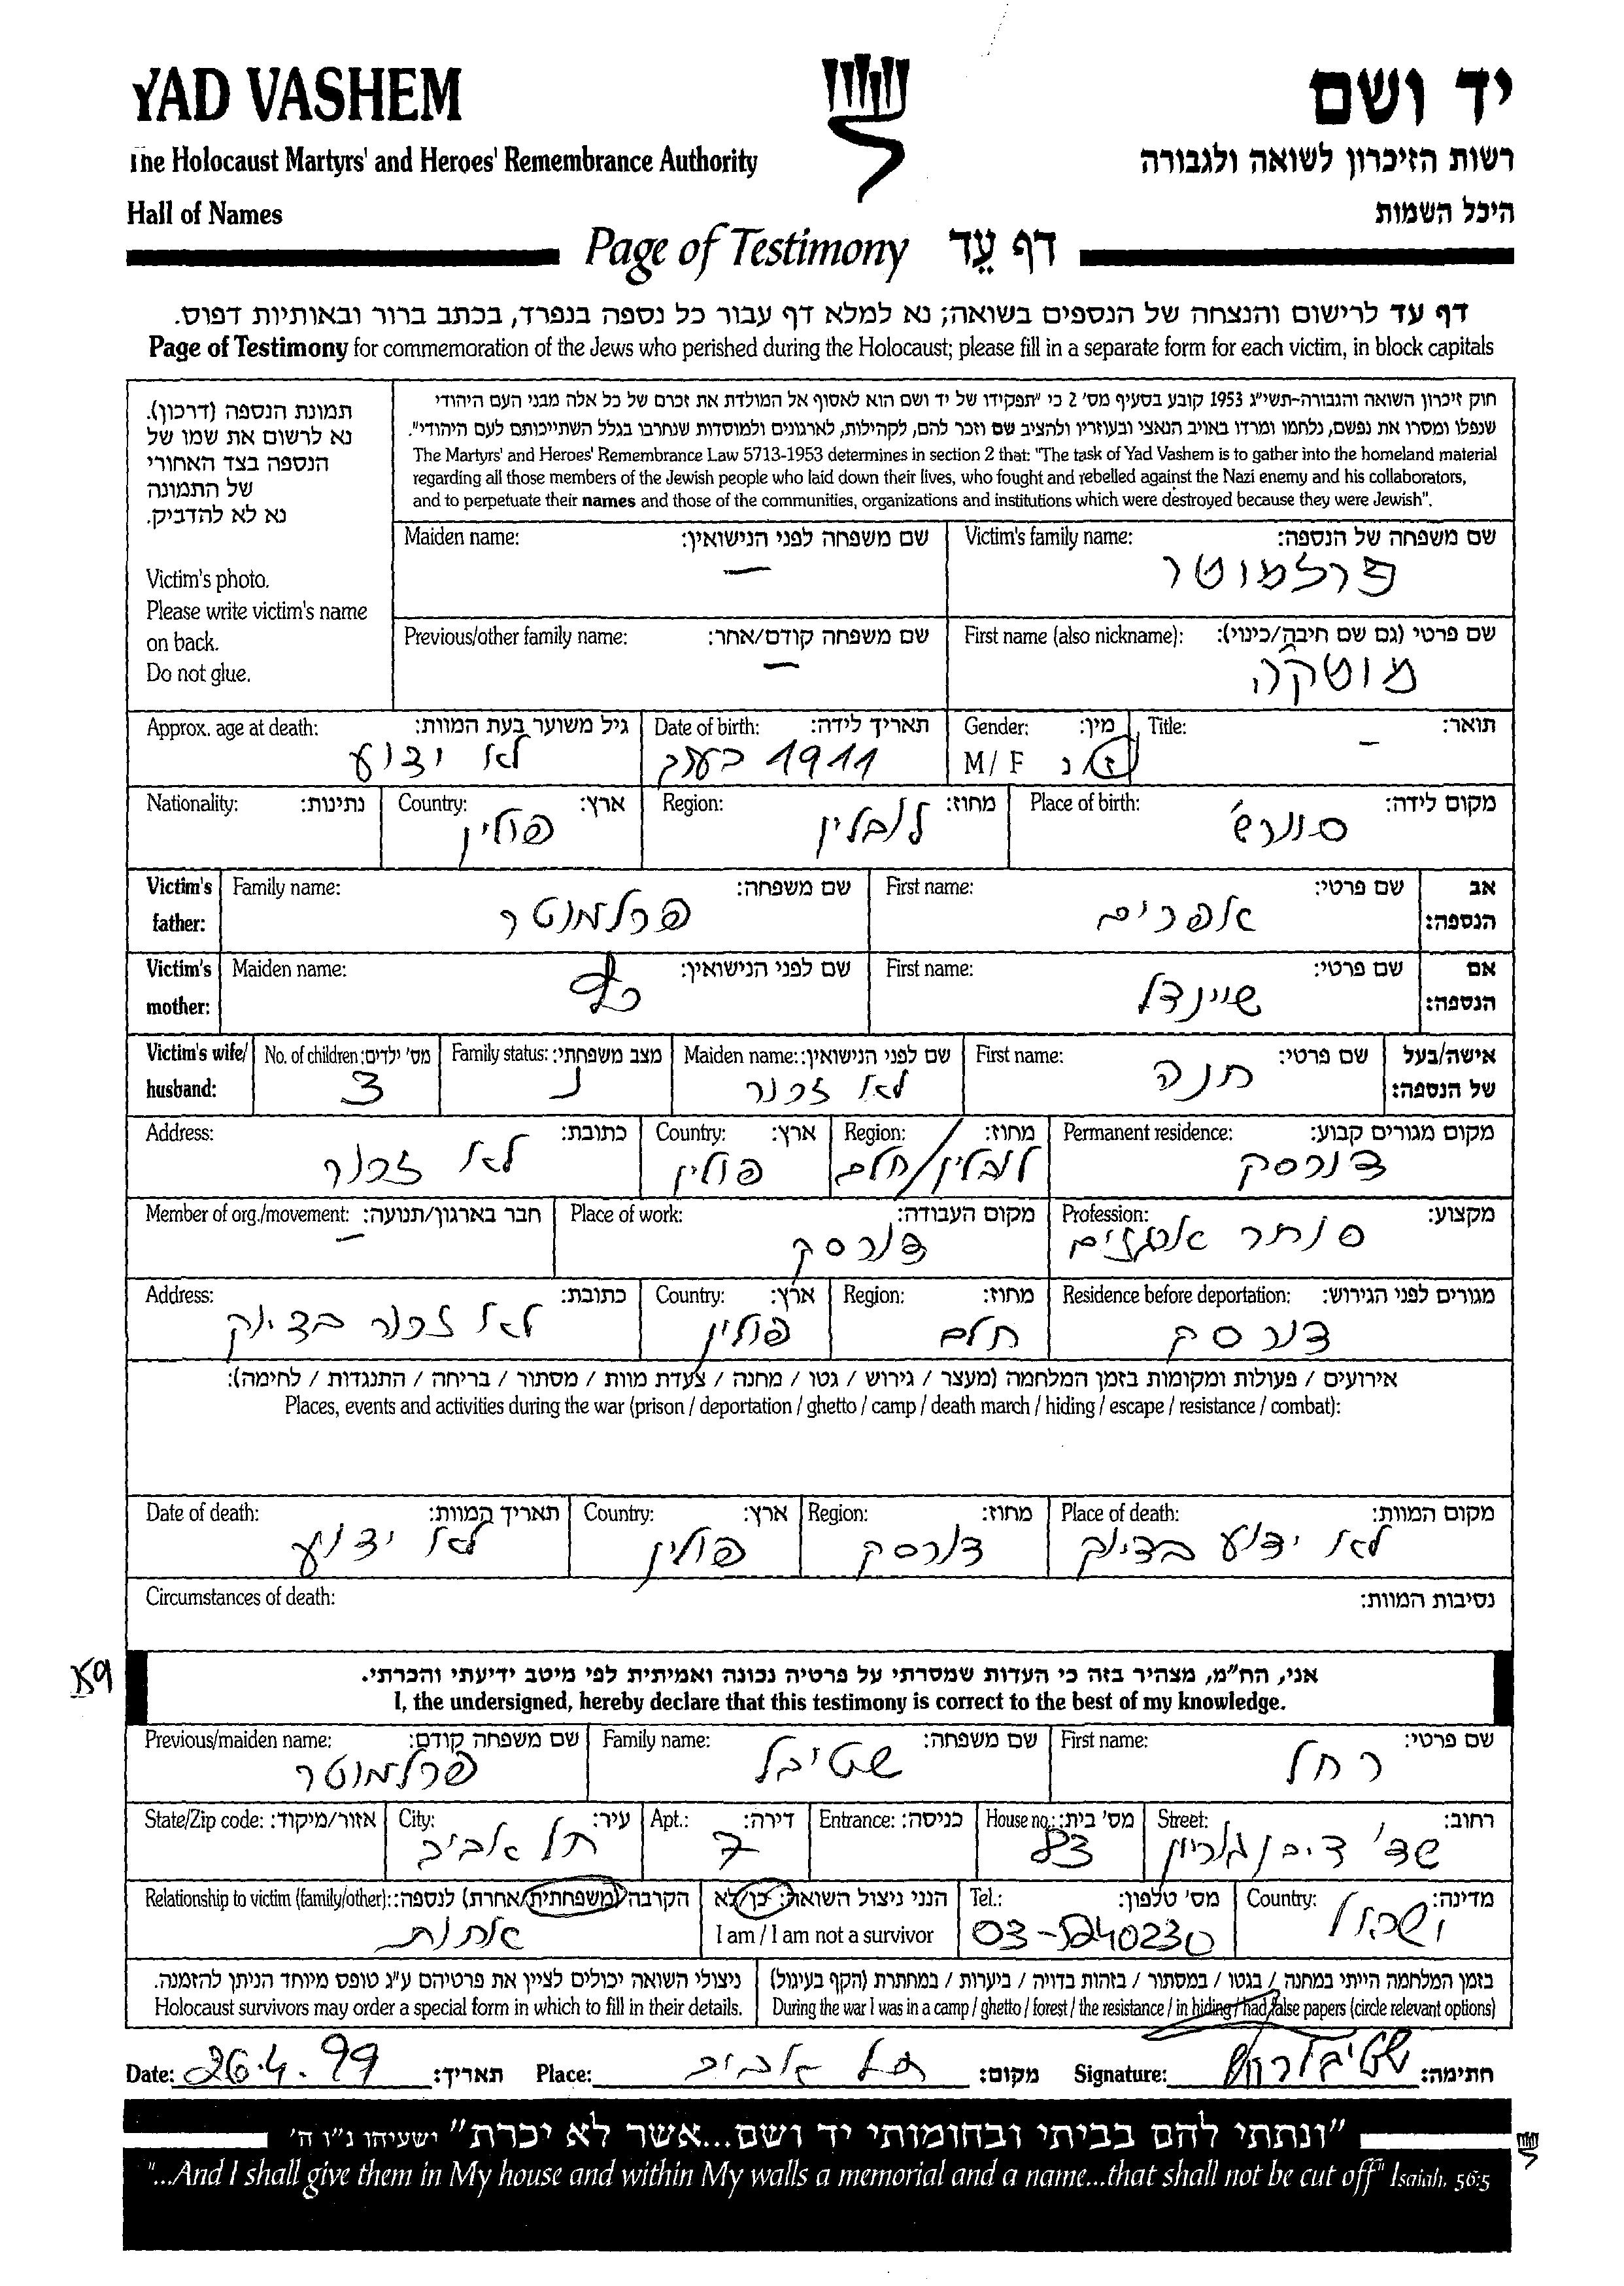 YAD VASHEM יד ושם
The Holocaust Martyrs' and Heroes' Remembrance Authority רשות הזיכרון לשואה ולגבורה
Hall of Names היכל השמות
Page of Testimony דף עֵד
דף עד לרישום והנצחה של הנספים בשואה; נא למלא דף עבור כל נספה בנפרד, בכתב ברור ובאותיות דפוס.
Page of Testimony for commemoration of the Jews who perished during the Holocaust; please fill in a separate form for each victim, in block capitals
תמונת הנספה (דרכון).
נא לרשום את שמו של
הנספה בצד האחורי
של התמונה
נא לא להדביק.
Victim's photo.
Please write victim's name
on back.
Do not glue.
חוק זיכרון השואה והגבורה-תשי"ג 1953 קובע בסעיף מס' 2 כי "תפקידו של יד ושם הוא לאסוף אל המולדת את זכרם של כל אלה מבני העם היהודי
שנפלו ומסרו את נפשם, נלחמו ומרדו באויב הנאצי ובעוזריו ולהציב שם וזכר להם, לקהילות, לארגונים ולמוסדות שנחרבו בגלל השתייכותם לעם היהודי".
The Martyrs' and Heroes' Remembrance Law 5713-1953 determines in section 2 that: "The task of Yad Vashem is to gather into the homeland material
regarding all those members of the Jewish people who laid down their lives, who fought and rebelled against the Nazi enemy and his collaborators,
and to perpetuate their names and those of the communities, organizations and institutions which were destroyed because they were Jewish".
Maiden name: שם משפחה לפני הנישואין: Victim's family name: שם משפחה של הנספה:
— פרלמוטר
Previous/other family name: שם משפחה קודם/אחר: First name (also nickname): שם פרטי (גם שם חיבה/כינוי):
— מוטקה
Approx. age at death: גיל משוער בעת המוות: Date of birth: תאריך לידה: Gender: מין: Title: תואר:
לא ידוע 1911 בערך M / F ז/נ —
Nationality: נתינות: Country: ארץ: Region: מחוז: Place of birth: מקום לידה:
פולין לובלין
Victim's father: Family name: שם משפחה: First name: שם פרטי: אב הנספה:
פרלמוטר אפרים
Victim's mother: Maiden name: שם לפני הנישואין: First name: שם פרטי: אם הנספה:
שיינדל
Victim's wife/ husband: No. of children: מס' ילדים: Family status: מצב משפחתי: Maiden name: שם לפני הנישואין: First name: שם פרטי: אישה/בעל של הנספה:
3 נ לא זכור חנה
Address: כתובת: Country: ארץ: Region: מחוז: Permanent residence: מקום מגורים קבוע:
לא זכור פולין לובלין/חלם דורסק
Member of org./movement: חבר בארגון/תנועה: Place of work: מקום העבודה: Profession: מקצוע:
— דורסק סוחר
Address: כתובת: Country: ארץ: Region: מחוז: Residence before deportation: מגורים לפני הגירוש:
לא זכור בדיוק פולין חלם דורסק
אירועים / פעולות ומקומות בזמן המלחמה (מעצר / גירוש / גטו / מחנה / צעדת מוות / מסתור / בריחה / התנגדות / לחימה):
Places, events and activities during the war (prison / deportation / ghetto / camp / death march / hiding / escape / resistance / combat):
Date of death: תאריך המוות: Country: ארץ: Region: מחוז: Place of death: מקום המוות:
לא ידוע פולין דורסק לא ידוע בדיוק
Circumstances of death: נסיבות המוות:
K9
אני, הח"מ, מצהיר בזה כי העדות שמסרתי על פרטיה נכונה ואמיתית לפי מיטב ידיעתי והכרתי.
I, the undersigned, hereby declare that this testimony is correct to the best of my knowledge.
Previous/maiden name: שם משפחה קודם: Family name: שם משפחה: First name: שם פרטי:
פרלמוטר שטיבל רחל
State/Zip code: אזור/מיקוד: City: עיר: Apt.: דירה: Entrance: כניסה: House no.: מס' בית: Street: רחוב:
תל אביב 7 83 שד' ד. בן גוריון
Relationship to victim (family/other): הקרבה (משפחתית/אחרת) לנספה: הנני ניצול השואה: כן/לא Tel.: מס' טלפון: Country: מדינה:
אחות I am / I am not a survivor 03-5240230 ישראל
ניצולי השואה יכולים לציין את פרטיהם ע"ג טופס מיוחד הניתן להזמנה. בזמן המלחמה הייתי במחנה / בגטו / במסתור / בזהות בדויה / ביערות / במחתרת (הקף בעיגול)
Holocaust survivors may order a special form in which to fill in their details. During the war I was in a camp / ghetto / forest / the resistance / in hiding / had false papers (circle relevant options)
Date: 26.4.99 תאריך: Place: תל אביב מקום: Signature: שטיבל רחל חתימה:
"ונתתי להם בביתי ובחומותי יד ושם...אשר לא יכרת" ישעיהו נ"ו ה'
"...And I shall give them in My house and within My walls a memorial and a name...that shall not be cut off" Isaiah, 56:5